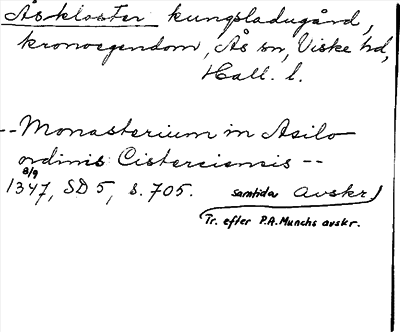 Åskloster kungsladugård,
kronoegendom, Ås sn, Viske hd,
Hall. l.
--Monasterium in Asilo
ordinis Cisterciensis --
8/9
1347, SD 5, s. 705. samtida avskr.
Tr. efter P.A.Munchs avskr.